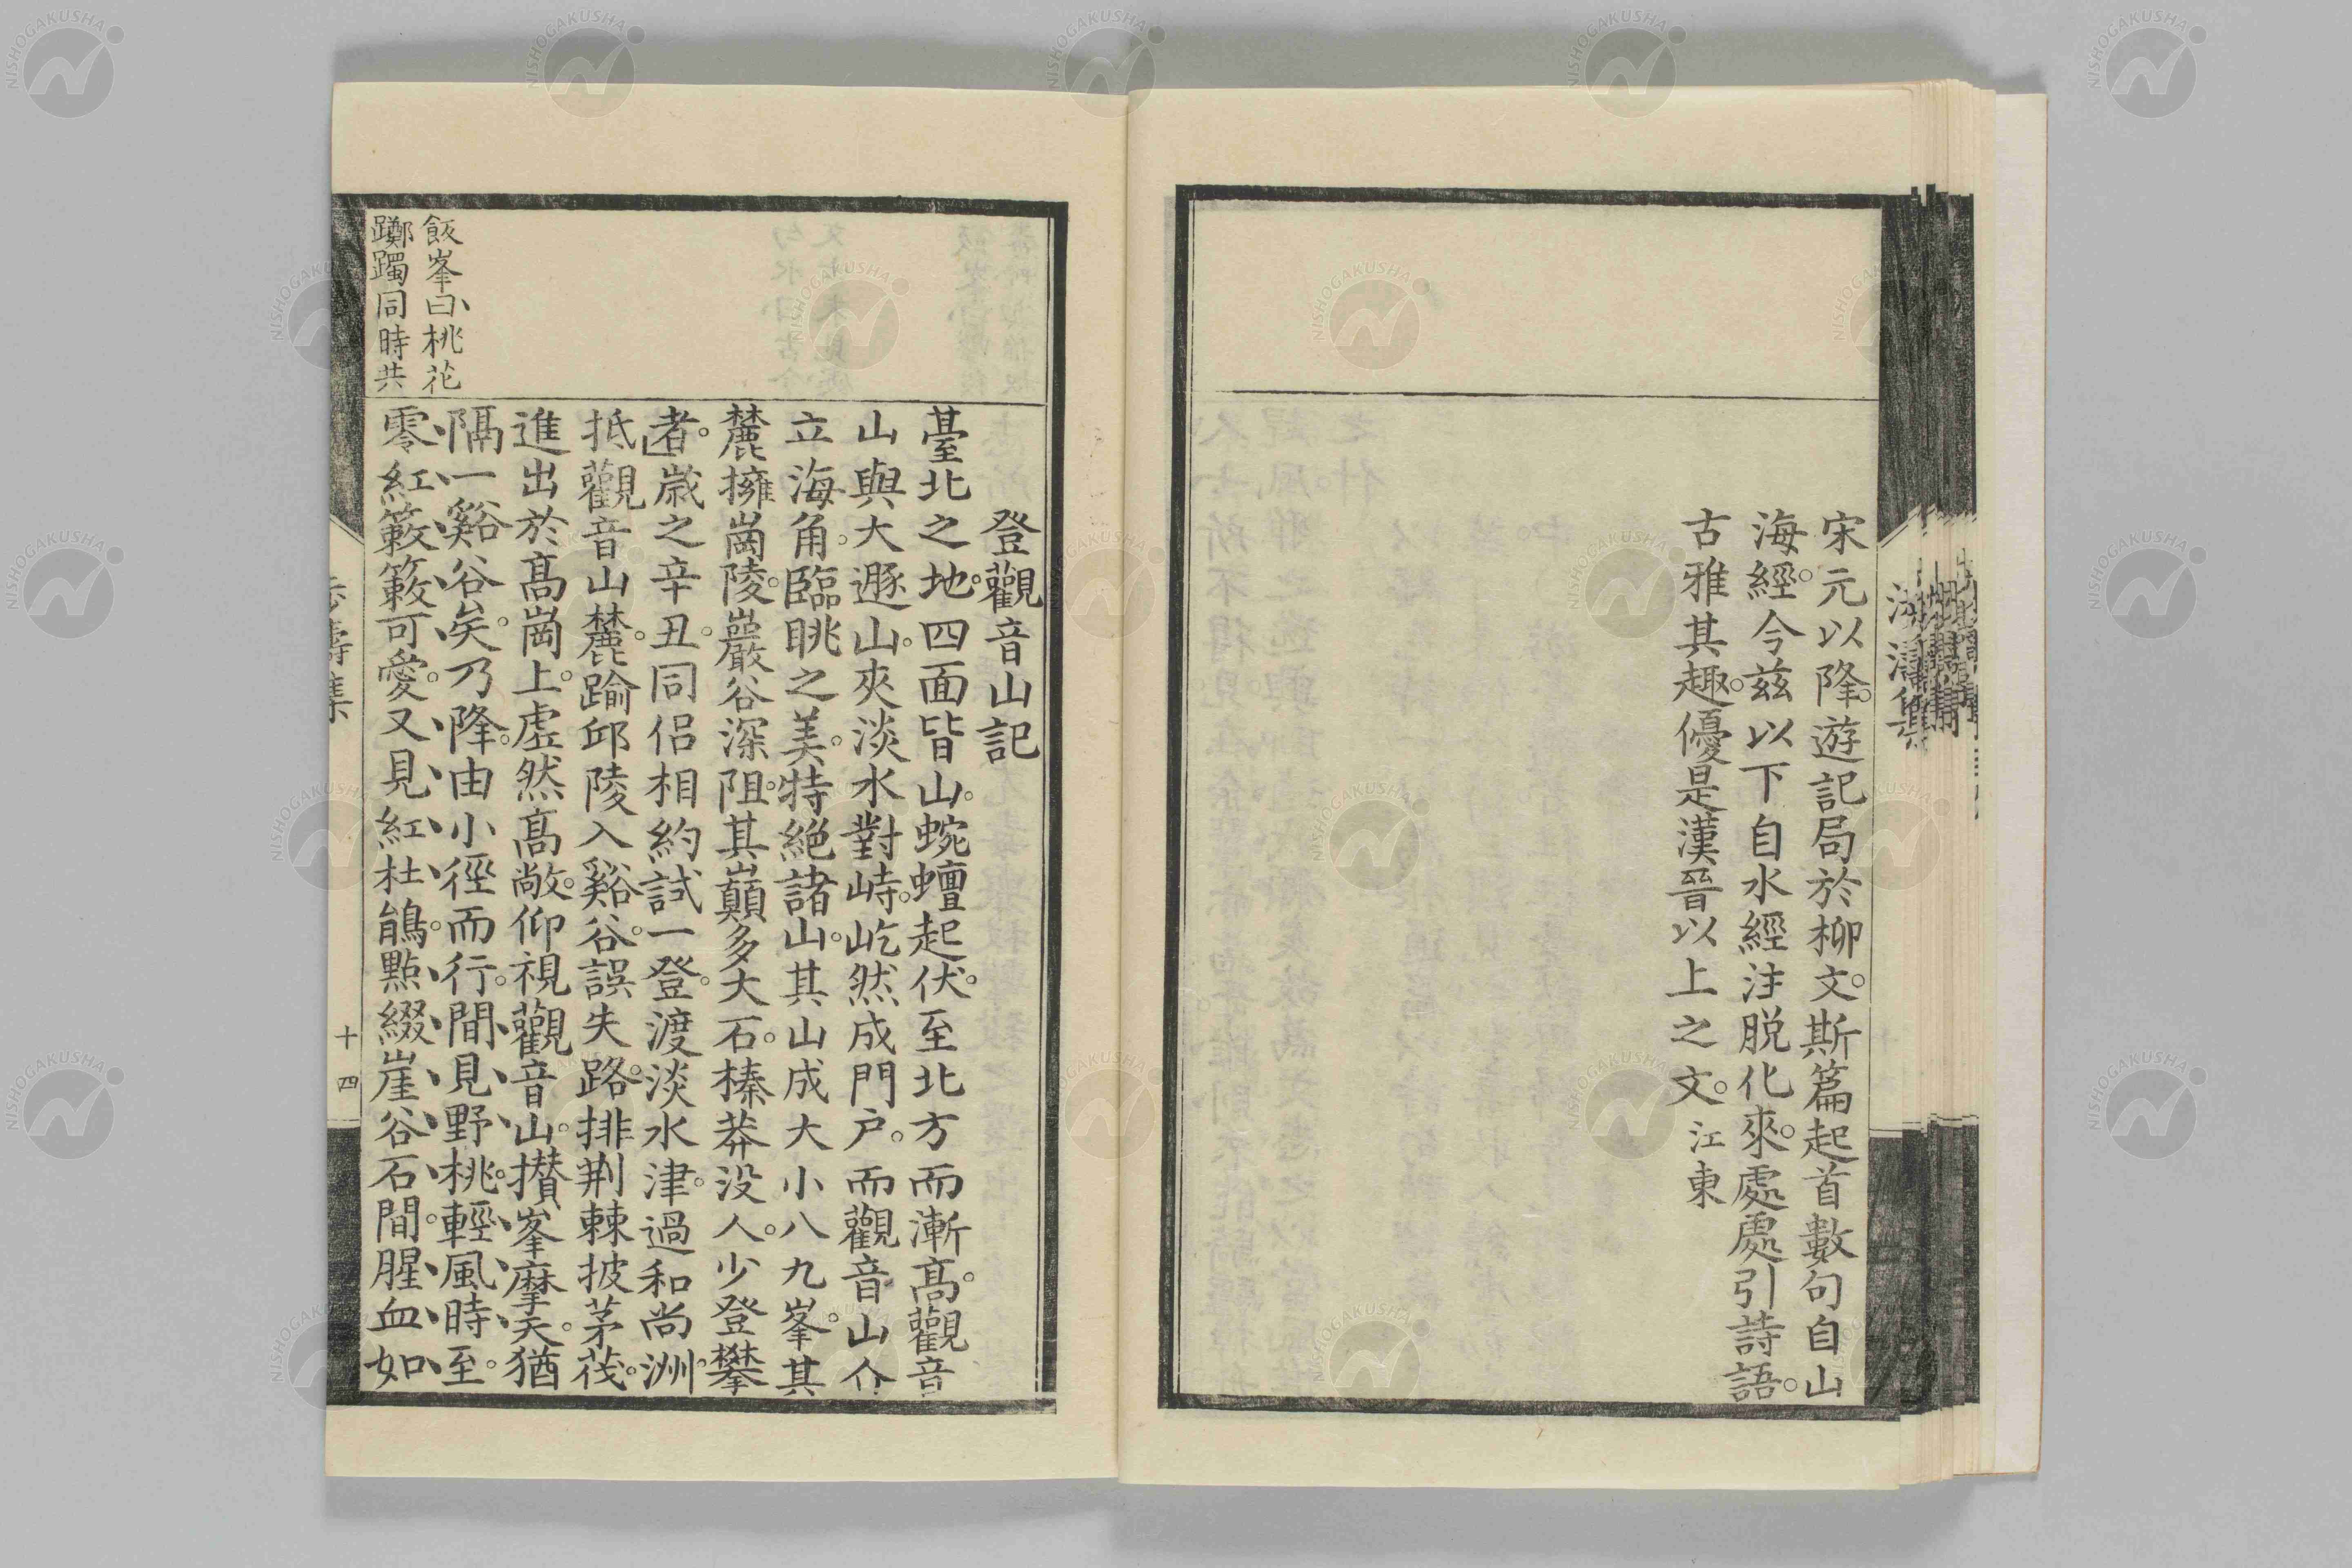 宋元以降。遊記局於柳文。斯篇起首數句自山
海經。今茲以下自水經注脱化來。處處引詩語。
古雅其趣。優是漢晉以上之文。江東
登觀音山記
臺北之地。四面皆山。蜿蟺起伏。至北方而漸高。觀音
山與大遯山。夾淡水對峙。屹然成門户。而觀音山介
立海角。臨眺之美。特絶諸山。其山成大小八九峯。其
麓擁崗陵。巖谷深阻。其巓多大石。榛莽没人。少登攀
者。歲之辛丑。同侶相約試一登。渡淡水津。過和尚洲。
抵觀音山麓。踰邱陵入谿谷。誤失路。排荆棘披茅茷。
進出於高崗上。虚然高敞。仰視觀音山。攅峯摩天。猶
隔一谿谷矣。乃降。由小徑而行。間見野桃。輕風時至。
零紅簌簌可愛。又見紅杜鵑。點綴崖谷石間。腥血如
飯峯曰、桃花
躑躅同時共
十四
NISHOGAKUSHA